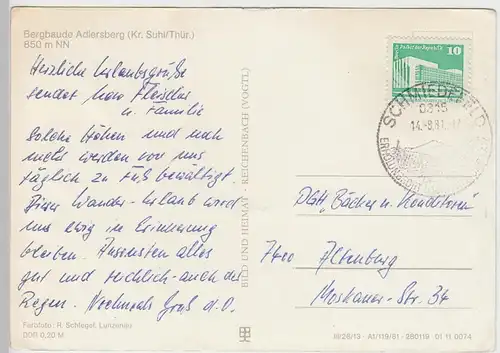 Bergbaude Adlersberg (Kr. Suhl/Thür.)
850 m NN
Herzliche Urlaubsgrüße
sendet
u. Familie
Solche Höhen und noch
mehr werden von uns
täglich zu Fuß bewältigt.
Dieser Wander-Urlaub wird
uns ewig in Erinnerung
bleiben. Ansonsten alles
gut und reichlich - auch der
Regen. Nochmals Gruß d. O.
Farbfoto: R. Schlegel, Lunzenau
DDR 0,20 M
BILD UND HEIMAT · REICHENBACH (VOGTL)
10
SCHMIEDEFELD
14.-8.81
ERHOLUNGSORT
PGH "Bäcker u. Konditoren"
7400 Altenburg
Moskauer-Str. 34
III/26/13 · A1/119/81 · 280119 01 11 0074